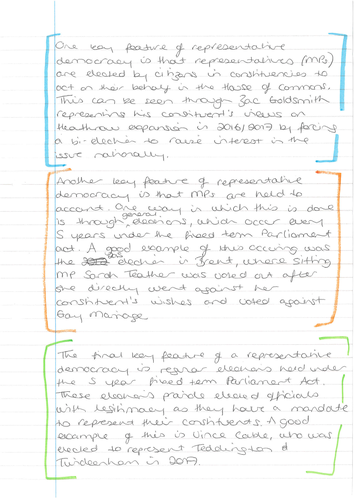 One key feature of representative
democracy is that representatives (MPs)
are elected by citizens in constituencies to
act on their behalf in the House of Commons.
This can be seen through Zac Goldsmith
representing his constituent's views on
Heathrow expansion in 2016/2017 by forcing
a bi-election to raise interest in the
issue nationally.
Another key feature of representative
democracy is that MPs are held to
account. One way in which this is done
is through general elections, which occur every
5 years under the fixed term Parliament
act. A good example of this occuring was
the election in Brent, where sitting
MP Sarah Teather was voted out after
she directly went against her
constituent's wishes and voted against
Gay Marriage.
The final key feature of a representative
democracy is regular elections held under
the 5 year fixed term Parliament Act.
These elections provide elected officials
with legitimacy as they have a mandate
to represent their constituents. A good
example of this is Vince Cable, who was
elected to represent Teddington &
Twickenham in 2017.